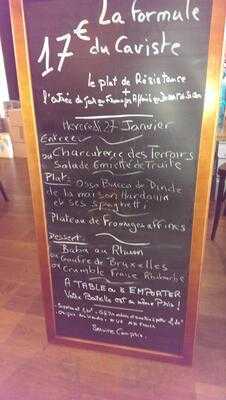 La formule
17€ du Caviste
le plat de Résistance
+
l'entrée du jour ou Fromages Affinés ou Dessert
Mercredi 27 Janvier
Entrée
Charcuterie des Terroirs
ou Salade Emiettée de Truite
Plat:
Osso Bucco de Dinde
de la maison Hardouin
et ses Spaghetti
Plateau de Fromages affinés
Dessert
Baba au Rhum
ou Gaufre de Bruxelles
ou Crumble Fraise Rhubarbe
A TABLE ou à EMPORTER
Votre Bouteille est au même Prix!
Service Compris.